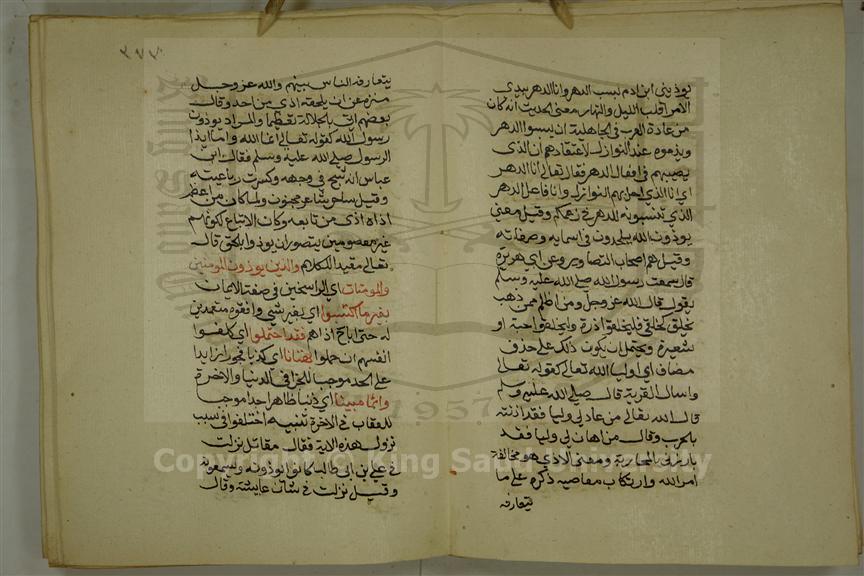 يوذيني ابن ادم يسب الدهر وانا الدهر بيدي
الامر اقلب الليل والنهار معنى الحديث انه كان
من عادة العرب في الجاهلية ان يسبوا الدهر
ويذموه عند النوازل لاعتقادهم ان الذي
يصيبهم من افعال الدهر فقال تعالى انا الدهر
اي انا الذي احل بهم النوازل وانا فاعل الدهر
الذي تنسبونه للدهر في زعمكم وقيل معنى
يوذون الله يلحدون في اسمايه وصفاته
وقيل هم اصحاب التصاوير وعن ابي هريرة
قال سمعت رسول الله صلى الله عليه وسلم
يقول قال الله عز وجل ومن اظلم ممن ذهب
يخلق كخلقي فليخلقوا ذرة وليخلقوا حبة او
شعيرة ويحتمل ان يكون ذلك على حذف
مضاف اي اوليا الله تعالى كقوله تعالى
واسال القرية قال صلى الله عليه وسلم
قال الله تعالى من عاد لي وليا فقد اذنته
بالحرب وقال من اهان لي وليا فقد
بارزني بالمحاربة ومعنى الاذى هو مخالفة
امر الله وارتكاب معاصيه ذكره على ما
يتعارفه
٣٧٢
يتعارفه الناس بينهم والله عز وجل
منزه عن ان يلحقه اذى من احد وقال
بعضهم اتى بالجلالة تعظيما والمراد يوذون
رسول الله كقوله تعالى انما الله واما ايذا
الرسول صلى الله عليه وسلم فقال ابن
عباس انه شج في وجهه وكسرت رباعيته
وقيل ساحر شاعر مجنون ولما كان من اعظم
اذاه اذى من تابعه وكان الاتباع لكونهم
غير معصومين يتصور ان يوذوا بالحق قال
تعالى مقيدا للكلام والذين يوذون المومنين
والمومنات اي الراسخين في صفة الايمان
بغير ما اكتسبوا اي بغير شي واقعوه متعمدين
له حتى اباح اذاهم فقد احتملوا اي كلفوا
انفسهم ان حملوا بهتانا اي كذبا فجورا زايدا
على الحد موجبا للخزي في الدنيا والاخرة
واثما مبينا اي ذنبا ظاهرا جدا موجبا
للعقاب في الاخرة تنبيه اختلفوا في سبب
نزول هذه الاية فقال مقاتل نزلت
في علي بن ابي طالب كانوا يوذونه ويسمعونه
وقيل نزلت في شان عايشة وقال
1957
Copyright © King Saud University